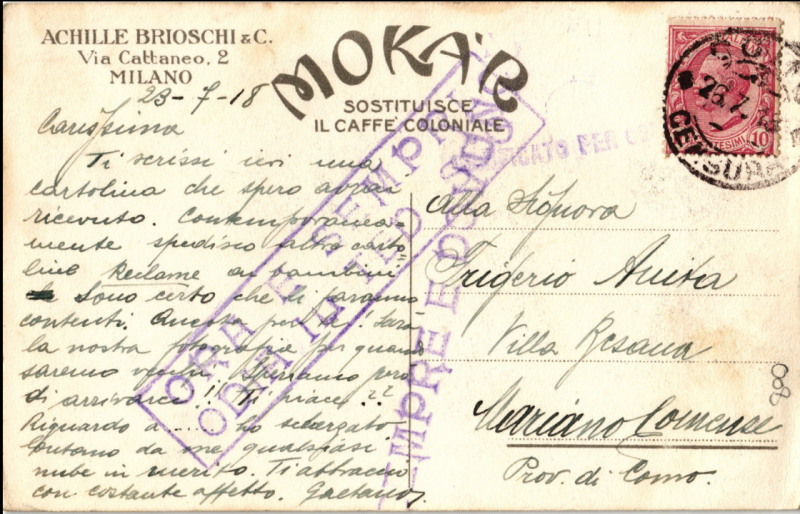 ACHILLE BRIOSCHI & C.
Via Cattaneo, 2
MILANO
MOKA'R
SOSTITUISCE
IL CAFFÈ COLONIALE
23-7-18
Carissima
Ti scrissi ieri una
cartolina che spero avrai
ricevuto. Contempora­nea-
mente spedisco altre carto
line Reclame ai bambini
Sono certo che si faranno
contenti. Ancora per te! Sarà
la nostra fotografia per quando
saremo vecchi. Speriamo però
di arrivarci!! Ti piace??
Riguardo a ..... ho scherzato
Lontano da me qualsiasi
nube in merito. Ti abbraccio
con costante affetto. Gaetano
Alla Signora
Frigerio Anita
Villa Resana
Mariano Comense
Prov. di Como.
860
ORA E SEMPRE
ODIA IL TEDESCO
EMPRE E
VERIFICATO PER CE
10
CENTESIMI
26.7.18
CENSURA